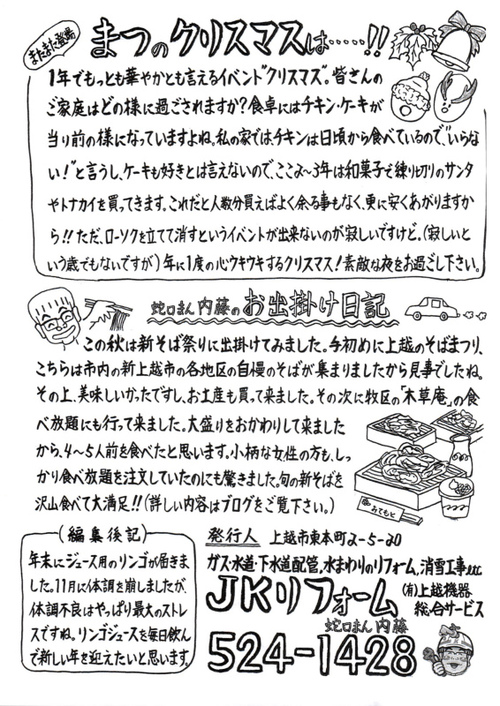 またまた登場
まつのクリスマスは……!!
1年でもっとも華やかとも言えるイベント"クリスマス"。皆さんの
ご家庭はどの様に過ごされますか?食卓にはチキン・ケーキが
当り前の様になっていますよね。私の家では、チキンは日頃から食べているので、"いらな
い!"と言うし、ケーキも好きとは言えないので、ここ2〜3年は和菓子で練り切りのサンタ
やトナカイを買ってきます。これだと人数分買えばよく余る事もなく、更に安くあがりますか
ら!!ただ、ローソクを立てて消すというイベントが出来ないのが寂しいですけど。(寂しいと
いう歳でもないですが)年に1度の心ウキウキするクリスマス!素敵な夜をお過ごし下さい。
蛇口まん内藤のお出掛け日記
この秋は新そば祭りに出掛けてみました。今初めに上越のそばまつり、
こちらは市内の新上越市の各地区の自慢のそばが集まりましたから見事でしたね。
その上、美味しかったですし、お土産も買って来ました。その次に牧区の「木草庵」の食
べ放題にも行って来ました。大盛りをおかわりして来ました
から、4〜5人前を食べたと思います。小柄な女性の方も、しっ
かり食べ放題を注文していたのにも驚きました。旬の新そばを
沢山食べて大満足!!(詳しい内容はブログをご覧下さい。)
おてもと
(編集後記)
年末にジュース用のリンゴが届きま
した。11月に体調を崩しましたが、
体調不良はやっぱり最大のストレ
スですね。リンゴジュースを毎日飲ん
で新しい年を迎えたいと思います。
発行人 上越市東本町2-5-20
ガス・水道・下水道配管、水まわりのリフォーム、消雪工事etc
JKリフォーム (有)上越機器総合サービス
蛇口まん内藤
524-1428